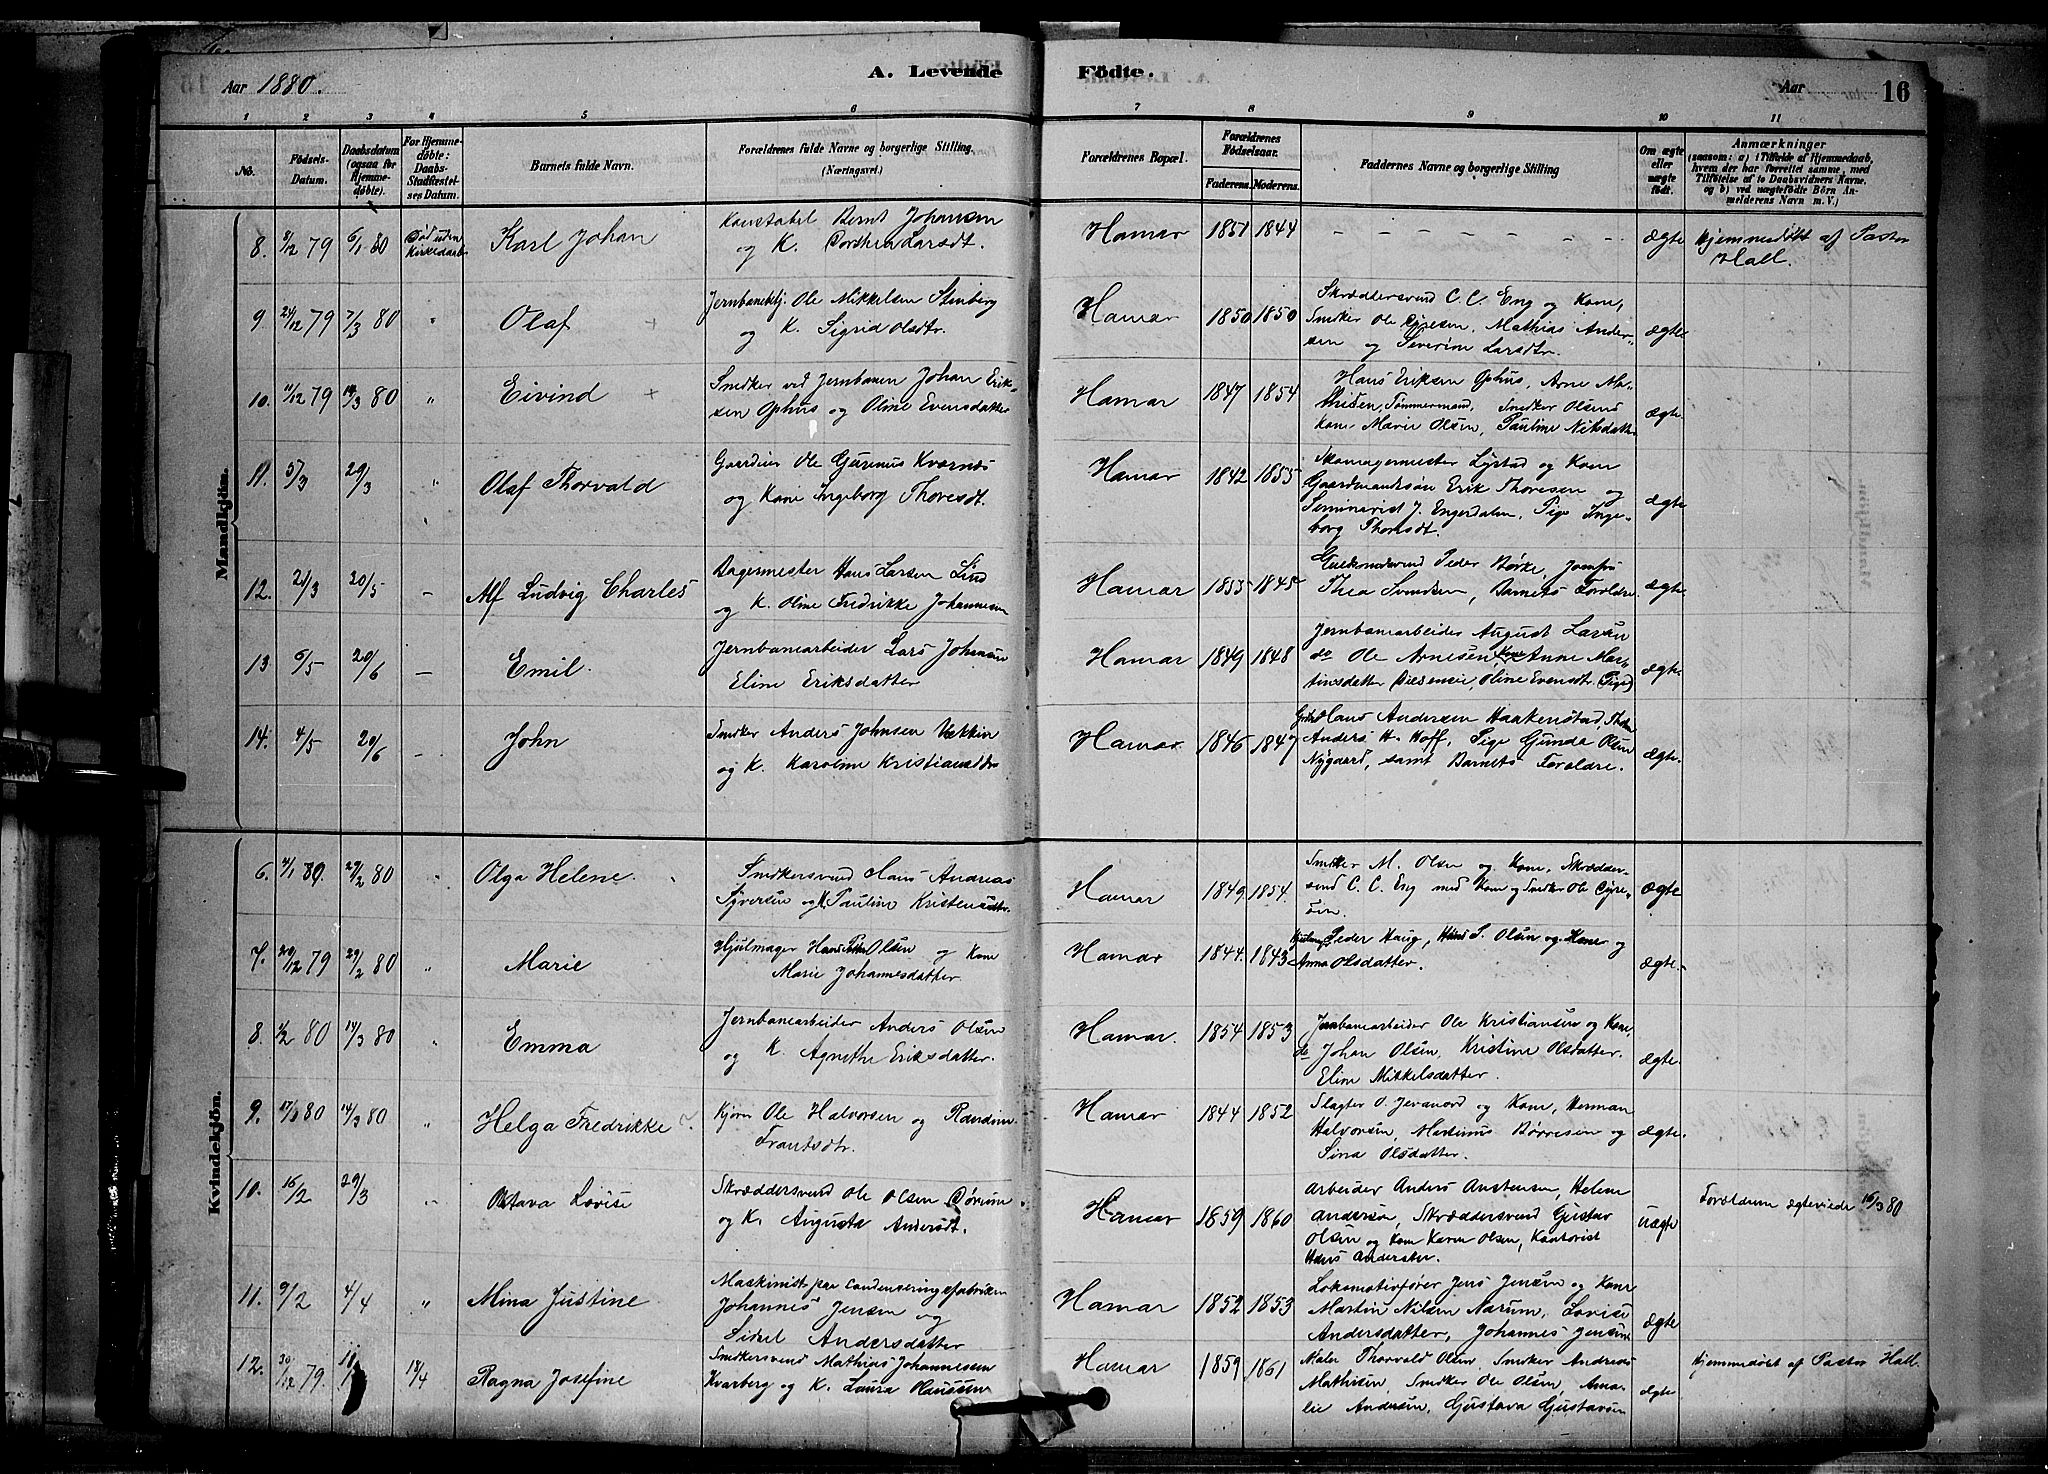 Aar 1880.
A. Levende Födte.
Aar 16
1 2 3 4 5 6 7 8 9 10 11
No.
Födsels-Datum.
Daabsdatum (ogsaa for Hjemme-døbte).
For Hjemme-døbte: Daabs-Stadfæstel-ses Datum.
Barnets fulde Navn.
Forældrenes fulde Navne og borgerlige Stilling.
(Næringsvei.)
Forældrenes Bopæl.
Forældrenes Födselsaar.
Faderens. Moderens.
Faddernes Navne og borgerlige Stilling
Om ægte eller uægte født.
Anmærkninger
(saasom: a) i Tilfælde af Hjemmedaab, hvem der har forrettet samme, med Tilføielse af to Daabsvidners Navne. og b) ved uægtefödte Börn An-melderens Navn m. V.)
Mandkjön.
8. 8/12 79 6/1 80 Død uden Kirkedaab Karl Johan
Konstabel Bernt Johansen
og K. Dorthea Larsdt.
Hamar 1851 1844 - - - - - - - ægte Hjemmedøbt af Pastor
Hall.
9. 24/12 79 7/3 80 " Olaf +
Jernbanebtj. Ole Mikkelsen Stenberg
og K. Sigrid Olsdtr.
Hamar 1850 1850
Skræddersvend C. C. Eng og Kone,
Snedker Ole Cyresen, Mathias Ander-
sen og Severine Larsdtr.
ægte
10. 11/12 79 14/3 80 " Eivind +
Snedker ved Jernbanen Johan Erik-
sen Ophus og Oline Evensdatter
Hamar 1847 1854
Hans Eriksen Ophus, Arne Ma-
thisen, Tømmermand, Snedker Olsens
kone Marie Olsen, Pauline Nilsdatter
ægte.
11. 5/3 29/3 " Olaf Thorvald
Gaardeier Ole Gurenus Kværnes
og Kone Ingeborg Thoresdt.
Hamar 1842 1855
Skomagermester Lystad og Kone
Gaardmandssøn Erik Thoresen og
Seminarist J. Engerdalen, Pige Inge-
borg Thoresdt.
ægte
12. 21/3 20/5 - Alf Ludvig Charles
Bagermester Hans Larsen Lind
og K. Oline Fredrikke Johannesen
Hamar 1853 1845
Peder Børke, Jomfru
Thea Svendsen, Barnets Forældre.
ægte.
13. 6/5 20/6 - Emil.
Jernbanearbeider Lars Johansen
Eline Eriksdatter
Hamar 1849 1848
Jernbanearbeider August Larsen
do Ole Arnesen, Kone Anne Mar-
tinsdatter, Oline Evensdt. (Pige)
ægte.
14. 4/5 20/6 - John
Snedker Anders Johnsen Vekkin
og K. Karoline Kristiansdtr
Hamar 1846 1847
Hans Andersen Haakenstad,
Anders H. Hoff, Pige Gunda Olsen
Nygaard, samt Barnets Forældre.
ægte.
Kvindekjön.
6. 4/1 80 29/2 80 " Olga Helene.
Snedkersvend Hans Andreas
Syversen og K. Pauline Kristensdtr.
Hamar 1849 1854.
Snedker M. Olsen og Kone, Skrædder-
svend C. C. Eng med Kone og Snedker Ole Cyre-
sen.
ægte
7. 20/12 79 29/2 80 " Marie
Hjulmager Hans Peter Olsen og Kone
Marie Johannesdatter
Hamar 1844. 1843
Peder Haug, Hans S. Olsen og Koner og
Anna Olsdatter.
ægte.
8. 1/2 80 14/3 80 " Emma
Jernbanearbeider Anders Olsen
og K. Agnethe Eriksdatter.
Hamar. 1854 1853
Jernbanearbeider Ole Kristiansen og Kone,
do Johan Olsen, Kristine Olsdatter.
Eline Mikkelsdatter.
ægte
9. 17/1 80 14/3 80 " Helga Fredrikke
Kjører Ole Halvorsen og Randine
Frantsdtr.
Hamar 1844 1852
Slagter O. Jevanord og Kone, Herman
Halvorsen, Martinus Børresen og
Sina Olsdatter.
ægte.
10. 16/2 29/3 " Oktava Lovise
Skræddersvend Ole Olsen Sørum
og K. Augusta Andersdt.
Hamar 1859 1860
Arbeider Anders Anstensen, Helene
Andersen, Skræddersvend Gustav
Olsen og Kone Karen Olsen, Kontorist
Hans Andersen.
uægte
Forældrene ægteviede 16/3 80
11. 9/2 4/4 " Mina Justine
Maskinist paa Condenseringsfabriken
Johannes Jensen og
Sidsel Andersdatter
Hamar 1852 1853
Lokomotivfører Jens Jensen og Kone
Martin Nilsen Narum, Lovise
Andersdatter, Johannes Jensen
ægte
12. 30/12 79. 18/4 Ragna Josefine
Snedkersvend Mathias Johannessen
Kvarberg og K. Laura Claussen
Hamar 1859 1861
Maler Thorvald Olsen, Snedker Andreas
Mathisen, Snedker Ole Olsen, Ama-
lie Andersen, Gustava Gustavsen
ægte
Hjemmedøbt af Pastor Hall.